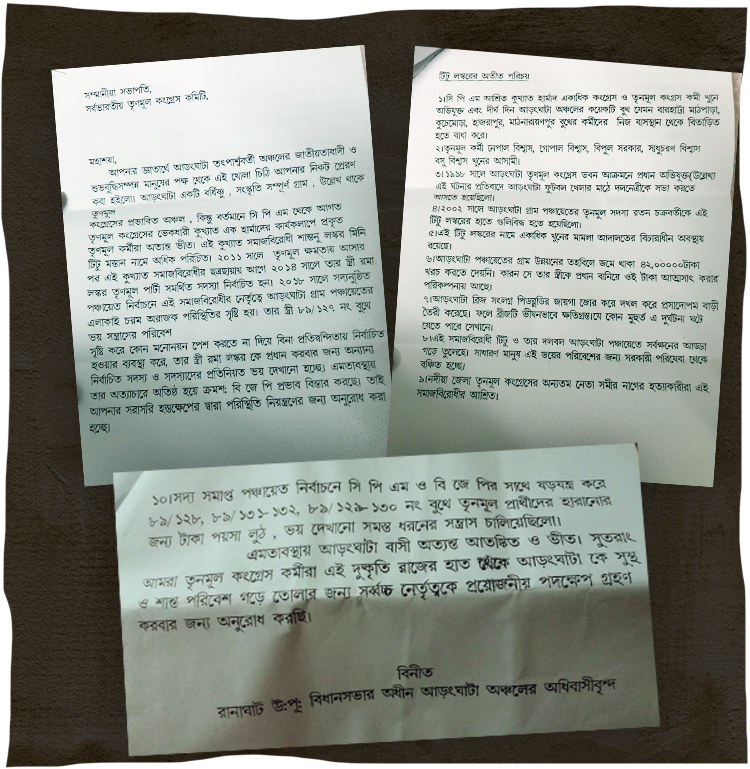 সম্মানীয়া সভাপতি,
সর্বভারতীয় তৃণমূল কংগ্রেস কমিটি,
মহাশয়া,
আপনার জ্ঞাতার্থে আড়ংঘাটা তৎপার্শ্ববর্তী অঞ্চলের জাতীয়তাবাদী ও
শুভবুদ্ধিসম্পন্ন মানুষের পক্ষ থেকে এই খোলা চিঠি আপনার নিকট প্রেরণ
করা হইলো। আড়ংঘাটা একটি বর্ধিষ্ণু , সংস্কৃতি সম্পূর্ণ গ্রাম , উল্লেখ থাকে
তৃণমূল
কংগ্রেসের প্রভাবিত অঞ্চল , কিন্তু বর্তমানে সি পি এম থেকে আগত
তৃণমূল কংগ্রেসের ভেকধারী কুখ্যাত এক হার্মাদের কার্যকলাপে প্রকৃত
তৃণমূল কর্মীরা অত্যন্ত ভীত। এই কুখ্যাত সমাজবিরোধী শান্তনু লস্কর যিনি
টিটু মস্তান নামে অধিক পরিচিত। ২০১১ সালে তৃণমূল ক্ষমতায় আসার
পর এই কুখ্যাত সমাজবিরোধীর ছত্রছায়ায় আগে ২০১৪ সালে তার স্ত্রী রমা
লস্কর তৃণমূল পার্টী সমর্থিত সদস্যা নির্বাচিত হন। ২০১৮ সালে সদ্যনুষ্ঠিত
পঞ্চায়েত নির্বাচনে এই সমাজবিরোধীর নেতৃত্বে আড়ংঘাটা গ্রাম পঞ্চায়েতের
এলাকাই চরম অরাজক পরিস্থিতির সৃষ্টি হয়। তার স্ত্রী ৮৯/ ১২৭ নং বুথে
ভয় সন্ত্রাসের পরিবেশ
সৃষ্টি করে কোন মনোনয়ন পেশ করতে না দিয়ে বিনা প্রতিদ্বন্দিতায় নির্বাচিত
হওয়ার ব্যবস্থা করে, তার স্ত্রী রমা লস্কর কে প্রধান করবার জন্য অন্যান্য
নির্বাচিত সদস্য ও সদস্যাদের প্রতিনিয়ত ভয় দেখানো হচ্ছে। এমতাবস্থায়
তার অত্যাচারে অতিষ্ঠ হয়ে ক্রমশঃ বি জে পি প্রভাব বিস্তার করছে। তাই
আপনার সরাসরি হস্তক্ষেপের দ্বারা পরিস্থিতি নিয়ন্ত্রণের জন্য অনুরোধ করা
হচ্ছে।
টিটু লস্করের অতীত পরিচয়
১।সি পি এম আশ্রিত কুখ্যাত হার্মাদ একাধিক কংগ্রেস ও তৃনমূল কংগ্রস কর্মী খুনে
অভিযুক্ত এবং দীর্ঘ দিন আড়ংঘাটা অঞ্চলের কয়েকটি বুথ যেমন বারহাট্টা মাঠপাড়া,
কুচেমোড়া, হাজরাপুর, মাঠনারায়ণপুর বুথের কর্মীদের নিজ বাসস্থান থেকে বিতাড়িত
হতে বাধ্য করে।
২।তৃনমূল কর্মী নেপাল বিশ্বাস, গোপাল বিশ্বাস, বিপুল সরকার, সাধুচরণ বিশ্বাস
বসু বিশ্বাস খুনের আসামী।
৩।১৯৯৮ সালে আড়ংঘাটা তৃণমূল কংগ্রেস ভবন আক্রমনে প্রধান অভিযুক্ত(উল্লেখ্য
এই ঘটনার প্রতিবাদে আড়ংঘাটা ফুটবল খেলার মাঠে দলনেত্রীকে সভা করতে
আসতে হয়েছিলো)
৪/২০০২ সালে আড়ংঘাটা গ্রাম পঞ্চায়েতের তৃনমূল সদস্য রতন চক্রবর্তীকে এই
টিটু লস্করের হাতে গুলিবিদ্ধ হতে হয়েছিলো।
৫।এই টিটু লস্করের নামে একাধিক খুনের মামলা আদালতের বিচারাধীন অবস্থায়
রয়েছে।
৬।আড়ংঘাটা পঞ্চায়েতের গ্রাম উন্নয়নের তহবিলে জমে থাকা ৪২,০০০০০টাকা
খরচ করতে দেয়নি। কারন সে তার স্ত্রীকে প্রধান বানিয়ে ওই টাকা আত্মসাৎ করার
পরিকল্পনায় আছে।
৭।আড়ংঘাটা ব্রিজ সংলগ্ন পিডব্লুডির জায়গা জোর করে দখল করে প্রসাদোপম বাড়ী
তৈরী করেছে। ফলে ব্রীজটি ভীষনভাবে ক্ষতিগ্রস্ত।যে কোন মুহুর্ত এ দুর্ঘটনা ঘটে
যেতে পারে সেখানে।
৮।এই সমাজবিরোধী টিটু ও তার দলবদল আড়ংঘাটা পঞ্চায়েতে সর্বক্ষনের আড্ডা
গড়ে তুলেছে। সাধারণ মানুষ এই ভয়ের পরিবেশের জন্য সরকারী পরিষেবা থেকে
বঞ্চিত হচ্ছে।
৯।নদীয়া জেলা তৃনমূল কংগ্রেসের অন্যতম নেতা সমীর নাগের হত্যাকারীরা এই
সমাজবিরোধীর আশ্রিত।
১০।সদ্য সমাপ্ত পঞ্চায়েত নির্বাচনে সি পি এম ও বি জে পির সাথে ষড়যন্ত্র করে
৮৯/১২৮, ৮৯/১৩১-১৩২, ৮৯/১২৯-১৩০ নং বুথে তৃনমূল প্রার্থীদের হারানোর
জন্য টাকা পয়সা লুঠ , ভয় দেখানো সমস্ত ধরনের সন্ত্রাস চালিয়েছিলো।
এমতাবস্থায় আড়ংঘাটা বাসী অত্যন্ত আতঙ্কিত ও ভীত। সুতরাং
আমরা তৃনমূল কংগ্রেস কর্মীরা এই দুষ্কৃতি রাজের হাত থেকে আড়ংঘাটা কে সুস্থ
ও শান্ত পরিবেশ গড়ে তোলার জন্য সর্ব্বচ্চ নের্তৃত্বকে প্রয়োজনীয় পদক্ষেপ গ্রহণ
করবার জন্য অনুরোধ করছি।
বিনীত
রানাঘাট উঃপূঃ বিধানসভার অধীন আড়ংঘাটা অঞ্চলের অধিবাসীবৃন্দ